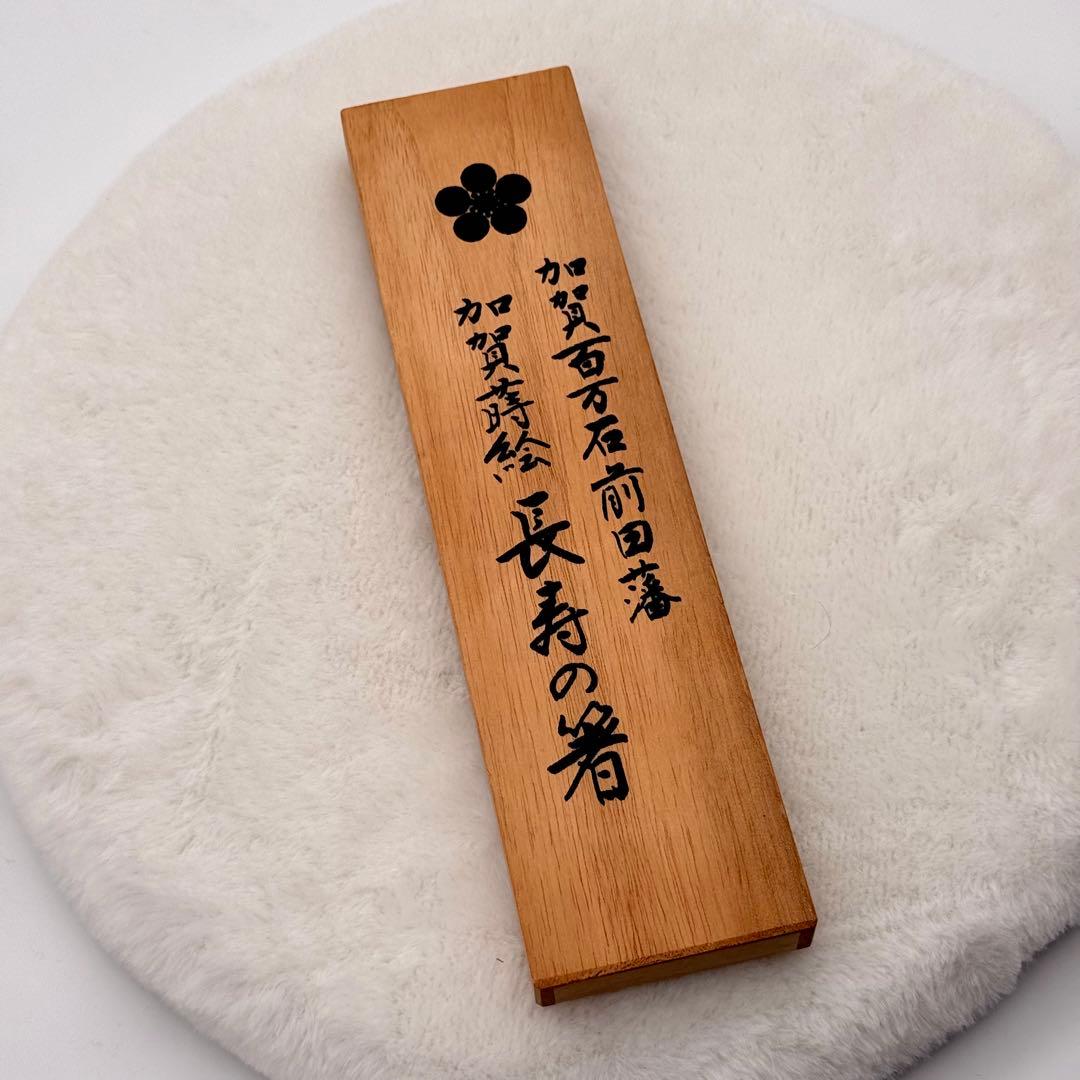 加賀百万石前田藩
加賀蒔絵長寿の箸